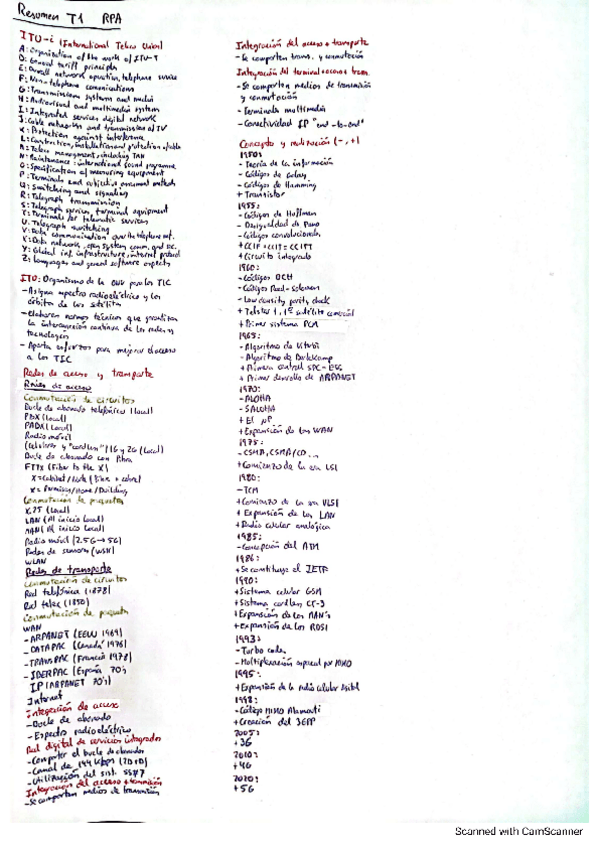 Resumen T1 RPA
ITU-i (International Teleco Union)
A: Organization of the work of ITU-T
D: General tariff principles
E: Overall network operation, telephone service
F: Non-telephone comunications
G: Transmissions systems and media
H: Audiovisual and multimedia system
I: Integrated services digital network
J: Cable networks and transmission of TV
K: Protection against interference
L: Construction, installation and protection of cable
M: Teleco management, including TMN
N: Maintenance: international sound programme
O: Specification of measuring equipment
P: Terminals and subjective assessment methods
Q: Switching and signaling
R: Telegraph transmission
S: Telegraph services, terminal equipment
T: Terminals for telematic services
U: Telegraph switching
V: Data communication over the telephone net.
X: Data network, open system comm. and sec.
Y: Global inf. infrastructure, internet protocol
Z: Languages and general software aspects
ITU: Organismo de la ONU para las TIC
- Asigna espectro radioeléctrico y las
órbita de los satélites
- Elaboran normas técnicas que garantizan
la interconexión continua de las redes y
tecnologías
- Aporta esfuerzos para mejorar el acceso
a las TIC
Redes de acceso y transporte
Redes de acceso
Conmutación de circuitos
Bucle de abonado telefónico (local)
PBX (Local)
PADX (Local)
Radio móvil
(Celulares y "cordless") 1G y 2G (Local)
Bucle de abonado con fibra
FTTx (Fiber to the X)
X=Cabinet/Curb (Fibra + cobre)
X= Premises/Home/Building
Conmutación de paquetes
X.25 (Local)
LAN (Al inicio local)
MAN (Al inicio local)
Radio móvil (2.5G→5G)
Redes de sensores (WSN)
WLAN
Redes de transporte
Conmutación de circuitos
Red telefónica (1878)
Red telex (1850)
Conmutación de paquetes
WAN
- ARPANET (EEUU 1969)
- DATAPAC (Canadá 1976)
- TRANSPAC (Francia 1978)
- IBERPAC (España 70's)
IP (ARPANET 70's)
Internet
Integración de acceso
- Bucle de abonado
- Espectro radioeléctrico
Red digital de servicios integrados
- Compartir el bucle de abonado
- Canal de 144 Kbps (2B+D)
- Utilización del sist. SS#7
Integración del acceso + transmisión
- Se comparten medios de transmisión
Integración del acceso + transporte
- Se comparten trans. y conmutación
Integración del terminal + acceso + trans.
- Se comparten medios de transmisión
y conmutación
- Terminales multimedia
- Conectividad IP "end-to-end"
Concepto y realización (-, +)
1950:
- Teoría de la información
- Códigos de Golay
- Códigos de Hamming
+ Transistor
1955:
- Códigos de Huffman
- Desigualdad de Fano
- Códigos convolucionales
+ CCIF + CCIT = CCITT
+ Circuito integrado
1960:
- Códigos BCH
- Códigos Reed-Solomon
- Low density parity check
+ Telstar 1, 1º satélite comercial
+ Primer sistema PCM
1965:
- Algoritmo de Viterbi
- Algoritmo de Berlekamp
+ Primera central SPC - ESS
+ Primer desarrollo de ARPANET
1970:
- ALOHA
- SALOHA
+ El μP
+ Expansión de las WAN
1975:
- CSMA, CSMA/CD...
+ Comienzo de la era LSI
1980:
- TCM
+ Comienzo de la era VLSI
+ Expansión de las LAN
+ Radio celular analógica
1985:
- Concepción del ATM
1986:
+ Se constituye el IETF
1990:
+ Sistema celular GSM
+ Sistema cordless CT-3
+ Expansión de las MAN's
+ Expansión de las RDSI
1993:
- Turbo codes
- Multiplexación espacial por MIMO
1995:
+ Expansión de la radio celular digital
1998:
- Código MIMO Alamouti
+ Creación del 3GPP
2005:
+ 3G
2010:
+ 4G
2020:
+ 5G
Scanned with CamScanner